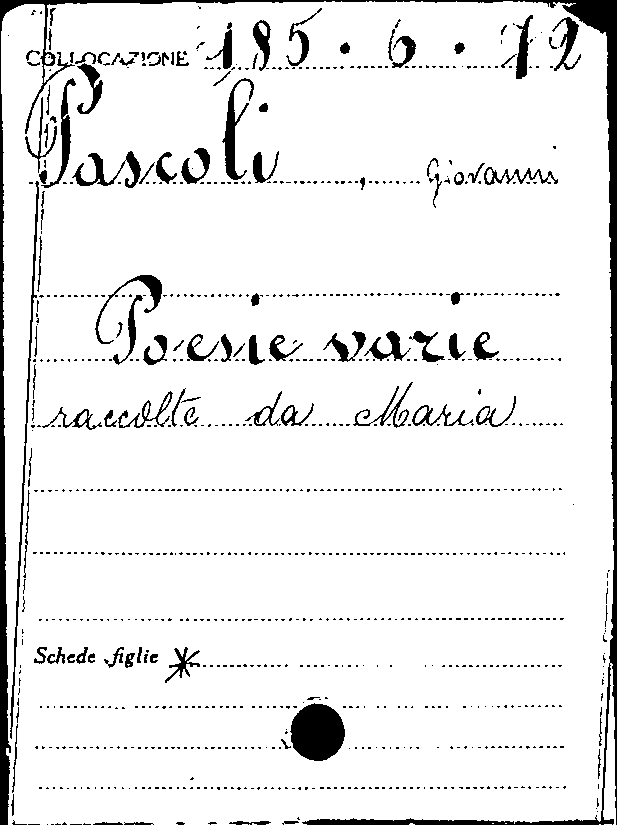 COLLOCAZIONE 185 . 6 . 72
Pascoli, Giovanni
Poesie varie
raccolte da Maria
Schede figlie *